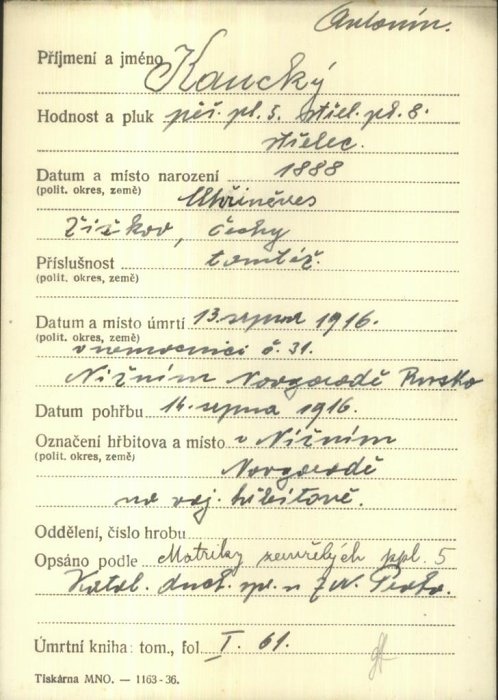 Antonín.
Příjmení a jméno Kaucký
Hodnost a pluk pěš. pl. 5. střel. pl. 8.
střelec.
Datum a místo narození 1888
(polit. okres, země) Uhříněves
Žižkov, Čechy
Příslušnost tamtéž.
(polit. okres, země)
Datum a místo úmrtí 13. srpna 1916.
(polit. okres, země) v nemocnici č. 31.
Nižním Novgorodě Rusko
Datum pohřbu 14. srpna 1916.
Označení hřbitova a místo v Nižním
(polit. okres, země) Novgorodě
na voj. hřbitově.
Oddělení, číslo hrobu
Opsáno podle Matriky zemřelých ppl. 5
Katol. duch. spr.
Úmrtní kniha: tom., fol. I. 61.
Tiskárna MNO. — 1163-36.